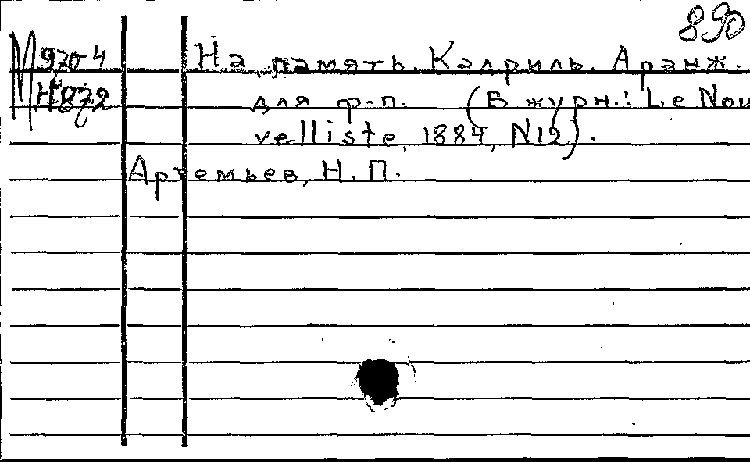 890
М 970-4 На память. Кадриль. Аранж.
Н872 для ф-п. (В журн.: Le Nou
velliste, 1884, N12).
Артемьев, Н. П.